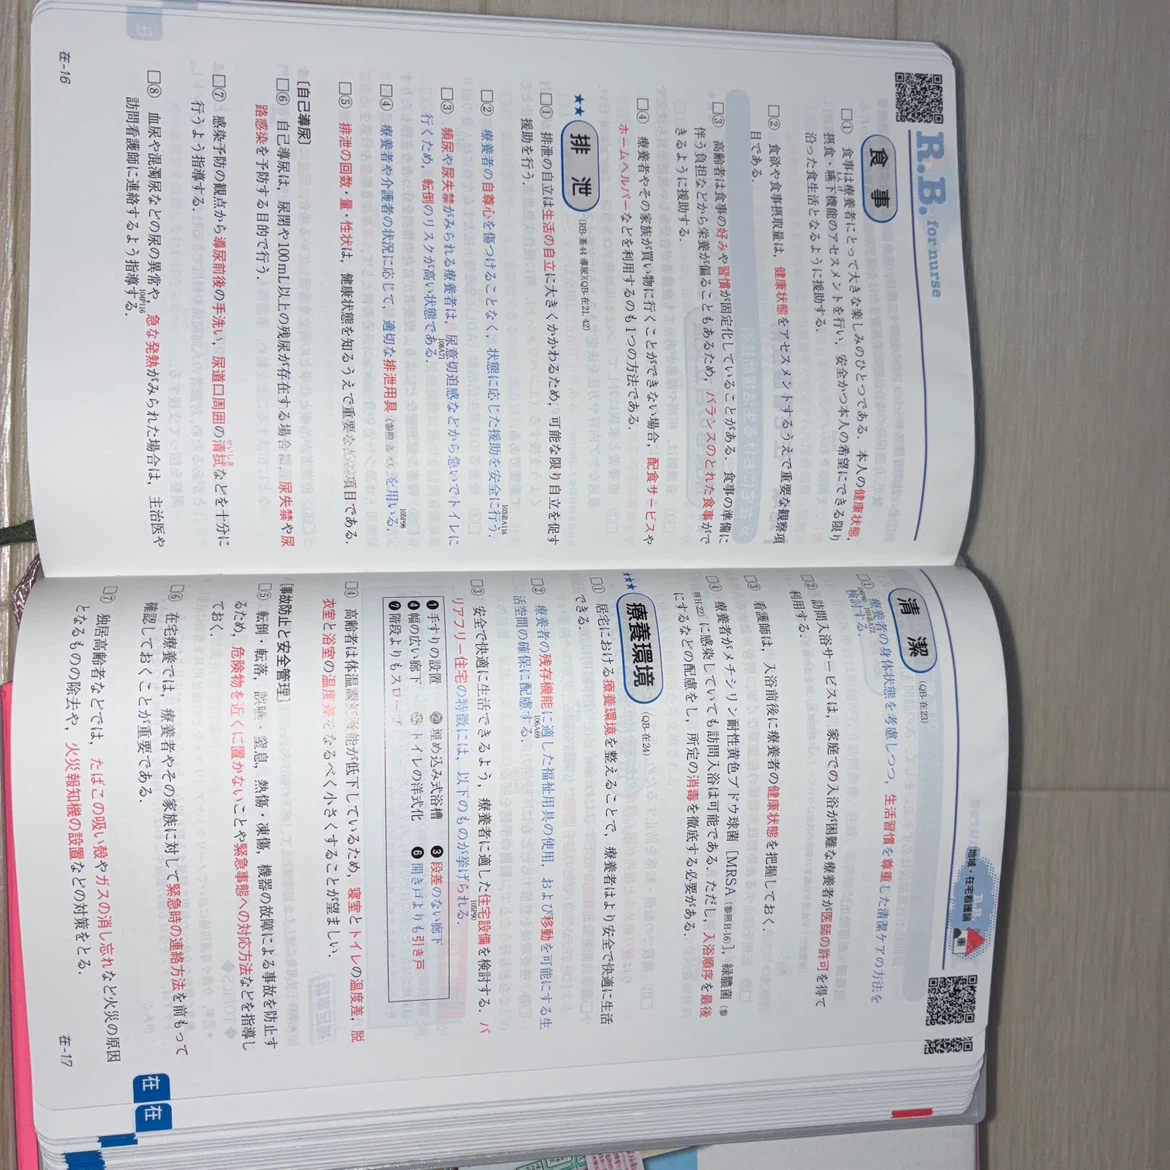 R.B. for nurse
食事
□① 食事は療養者にとって大きな楽しみのひとつである．本人の健康状態，
摂食・嚥下機能のアセスメントを行い，安全かつ本人の希望にできる限り
沿った食生活となるように援助する．
□② 食欲や食事摂取量は，健康状態をアセスメントするうえで重要な観察項
目である．
□③ 高齢者は食事の好みや習慣が固定化していることがある．食事の準備に
伴う負担などから栄養が偏ることもあるため，バランスのとれた食事がで
きるように援助する．
□④ 療養者やその家族が買い物に行くことができない場合，配食サービスや
ホームヘルパーなどを利用するのも1つの方法である．
★★
排泄 (RB-基44 導尿)(QB-在21, 42)
□① 排泄の自立は生活の自立に大きくかかわるため，可能な限り自立を促す
援助を行う．
□② 療養者の自尊心を傷つけることなく，状態に応じた援助を安全に行う．
103追A116
□③ 頻尿や尿失禁がみられる療養者は，尿意切迫感などから急いでトイレに
行くため，転倒のリスクが高い状態である．
106A71
□④ 療養者や介護者の状況に応じて，適切な排泄用具を用いる．
105P98
□⑤ 排泄の回数・量・性状は，健康状態を知るうえで重要な項目である．
［自己導尿］
□⑥ 自己導尿は，尿閉や100mL以上の残尿が存在する場合に，尿失禁や尿
路感染を予防する目的で行う．
□⑦ 感染予防の観点から導尿前後の手洗い，尿道口周囲の清拭などを十分に
せいしき
行うよう指導する．
□⑧ 血尿や混濁尿などの尿の異常や，急な発熱がみられた場合は，主治医や
訪問看護師に連絡するよう指導する．
104P116
在-16
地域・在宅看護論
清潔 (QB-在23)
□① 療養者の身体状態を考慮しつつ，生活習慣を尊重した清潔ケアの方法を
検討する．
□② 訪問入浴サービスは，家庭での入浴が困難な療養者が医師の許可を得て
利用する．
□③ 看護師は，入浴前後に療養者の健康状態を把握しておく．
□④ 療養者がメチシリン耐性黄色ブドウ球菌［MRSA（参照H-16）］，緑膿菌（参
照H-22）に感染していても訪問入浴は可能である．ただし，入浴順序を最後
にするなどの配慮をし，所定の消毒を徹底する必要がある．
★★★
療養環境 (QB-在24)
□① 居宅における療養環境を整えることで，療養者はより安全で快適に生活
できる．
□② 療養者の残存機能に適した福祉用具の使用，および移動を可能にする生
活空間の確保に配慮する．
106A69
□③ 安全で快適に生活できるよう，療養者に適した住宅設備を検討する．バ
リアフリー住宅の特徴には，以下のものが挙げられる．
105P90
❶手すりの設置 ❷埋め込み式浴槽 ❸段差のない廊下
❹幅の広い廊下 ❺トイレの洋式化 ❻開き戸よりも引き戸
❼階段よりもスロープ
□④ 高齢者は体温調節機能が低下しているため，寝室とトイレの温度差，脱
衣室と浴室の温度差をなるべく小さくすることが望ましい．
［事故防止と安全管理］
□⑤ 転倒・転落，誤嚥・窒息，熱傷・凍傷，機器の故障による事故を防止す
るため，危険物を近くに置かないことや緊急事態への対応方法などを指導し
ておく．
□⑥ 在宅療養では，療養者やその家族に対して緊急時の連絡方法を前もって
確認しておくことが重要である．
□⑦ 独居高齢者などでは，たばこの吸い殻やガスの消し忘れなど火災の原因
となるものの除去や，火災報知機の設置などの対策をとる．
在-17
在
在